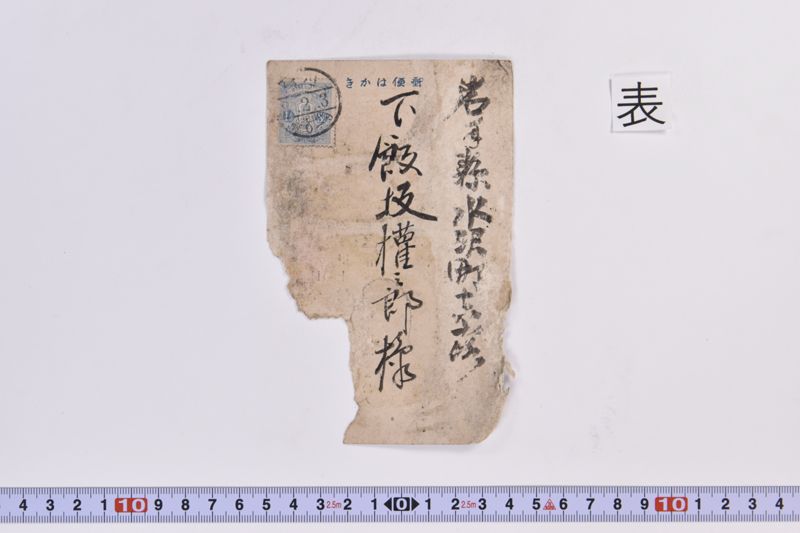 郵便はかき
岩手縣水沢町吉小路
下飯坂權三郎様
表
4 3 2 1 10 9 8 7 6 5 4 3 2.5m 2 1 0 1 2 2.5m 3 4 5 6 7 8 9 10 1 2 3 4